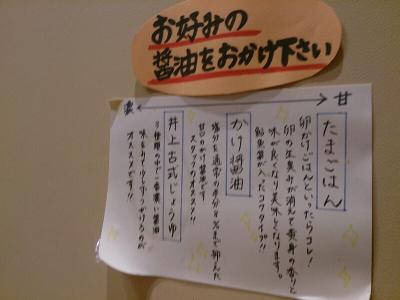 お好みの
醤油をおかけ下さい
濃 ←→ 甘
たまごはん
卵かけごはんといったらコレ!
卵の生臭みが消えて黄身の香りと
味が良くなり美味しくなります。
鮎魚醤が入ったコクタイプ!!
かけ醤油
塩分を通常の半分の8%まで抑えた
甘口のかけ醤油です
スタッフのオススメ!!
井上古式じょうゆ
3種類の中で一番濃い醤油
味をみて少しずつかけるのが
オススメです!!